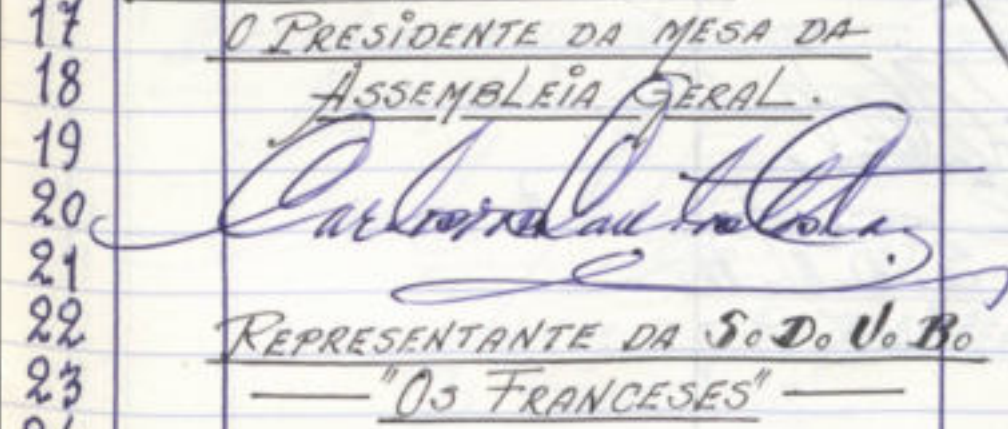 17 O PRESIDENTE DA MESA DA
18 ASSEMBLEIA GERAL.
19
20
21
22 REPRESENTANTE DA S.D.U.B.
23 "OS FRANCESES"